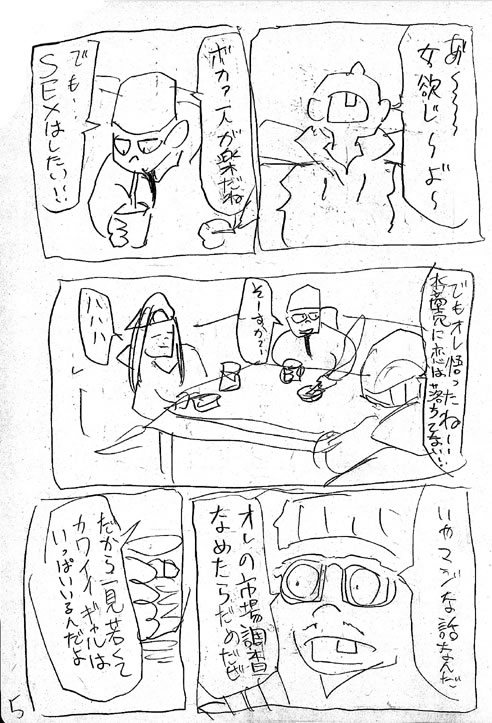 あ゛〜〜〜
女欲じ〜よ〜
ボカァ一人が楽だね
でも…
SEXはしたい!!
でもオレ悟ったねー!!
に恋は落ちてない!!
そーすか…
ハハハ
いやマジな話なんだ
オレの市場調査
なめたらだめだぜ
だから一見若くて
カワイイギャルは
いっぱいいるんだよ
5